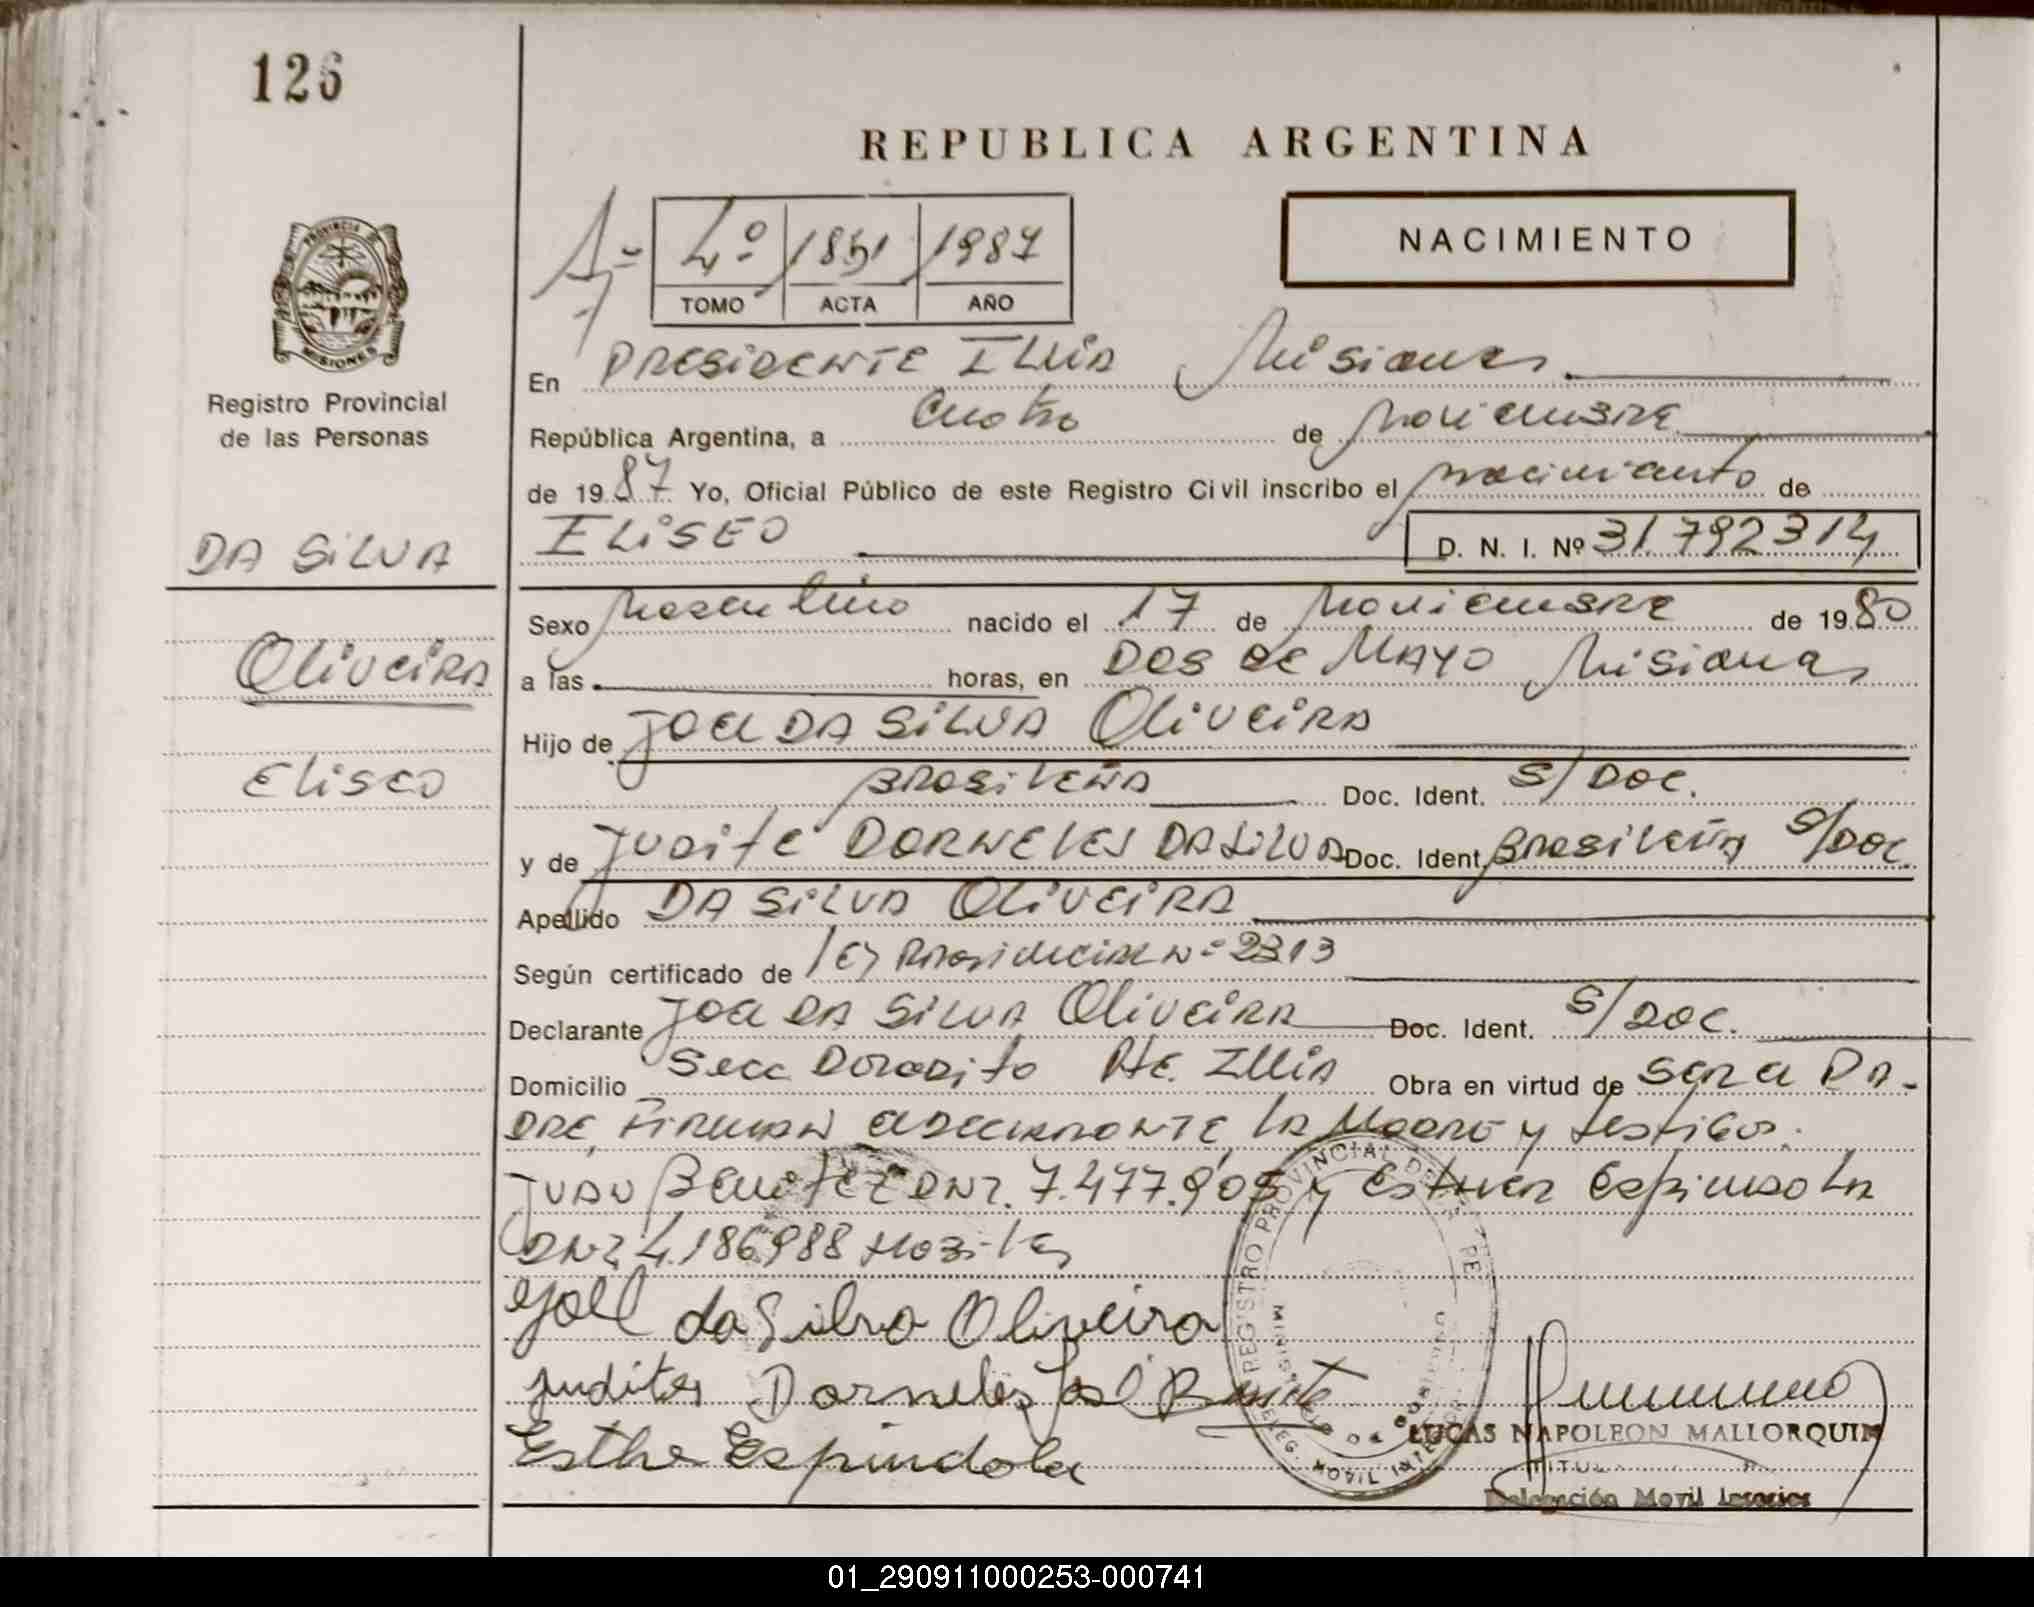 126
REPUBLICA ARGENTINA
4º 1851 1987
TOMO ACTA AÑO
NACIMIENTO
PROVINCIA DE
MISIONES
Registro Provincial
de las Personas
En PRESIDENTE ILLIA Misiones
República Argentina, a Cuatro de Noviembre
de 1987 Yo, Oficial Público de este Registro Civil inscribo el nacimiento de
ELISEO D. N. I. Nº 31.792314
DA SILVA
Oliveira
Eliseo
Sexo Masculino nacido el 17 de Noviembre de 1980
a las horas, en DOS DE MAYO Misiones
Hijo de Joel DA SILVA Oliveira
Brasileña Doc. Ident. S/Doc.
y de Judite DORNELES DA SILVA Doc. Ident. Brasileña S/Doc.
Apellido DA SILVA Oliveira
Según certificado de Ley Presidencial Nº 2313
Declarante Joel DA SILVA Oliveira Doc. Ident. S/Doc.
Domicilio Secc Doradito Pte. Illia Obra en virtud de ser el Pa-
dre, Firman el declarante, la Madre y testigos.
Juan Benitez DNI. 7.477.905 y Esther Espindola
DNI 4.186.988
Joel da Silva Oliveira
Judites Dorneles José Benite
Esthe Espindola
REGISTRO PROVINCIAL DE LAS PE
MINISTERIO DE GOBIERNO
DELEG. MOVIL INTERIOR
LUCAS NAPOLEON MALLORQUIN
TITULAR
Delegación Movil
01_290911000253-000741